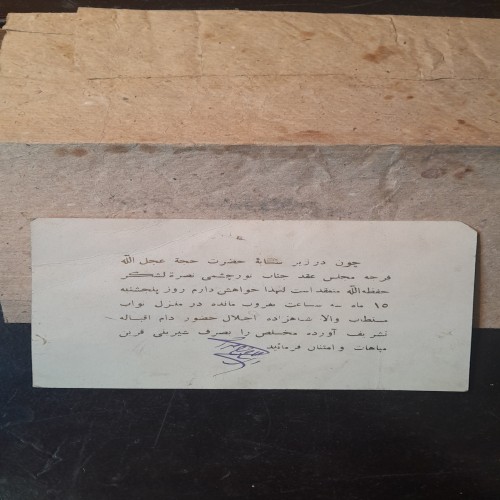 چون در زیر سایهٔ حضرت حجة عجل الله
فرجه مجلس عقد جناب نورچشمی نصرة لشکر
حفظه الله منعقد است لهذا خواهش دارم روز پنجشنبه
۱۵ ماه سه ساعت بغروب مانده در منزل نواب
مستطاب والا شاهزاده اجلال حضور دام اقباله
تشریف آورده مخلص را بصرف شیرینی قرین
مباهات و امتنان فرمائید